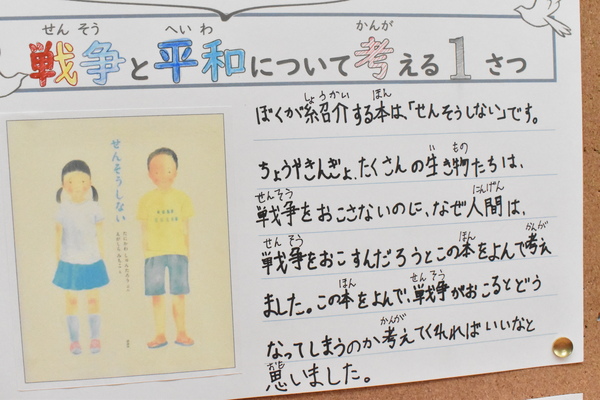 せん そう へい わ かんが
戦争と平和について考える1さつ
しょうかい ほん
ぼくが紹介する本は、「せんそうしない」です。
もの
ちょうやきんぎょ、たくさんの生き物たちは、
せんそう にんげん
戦争をおこさないのに、なぜ人間は、
せん そう ほん かんが
戦争をおこすんだろうとこの本をよんで考え
ほん せん そう
ました。この本をよんで、戦争がおこるとどう
かんが
なってしまうのか考えてくれればいいなと
思いました。
せんそうしない